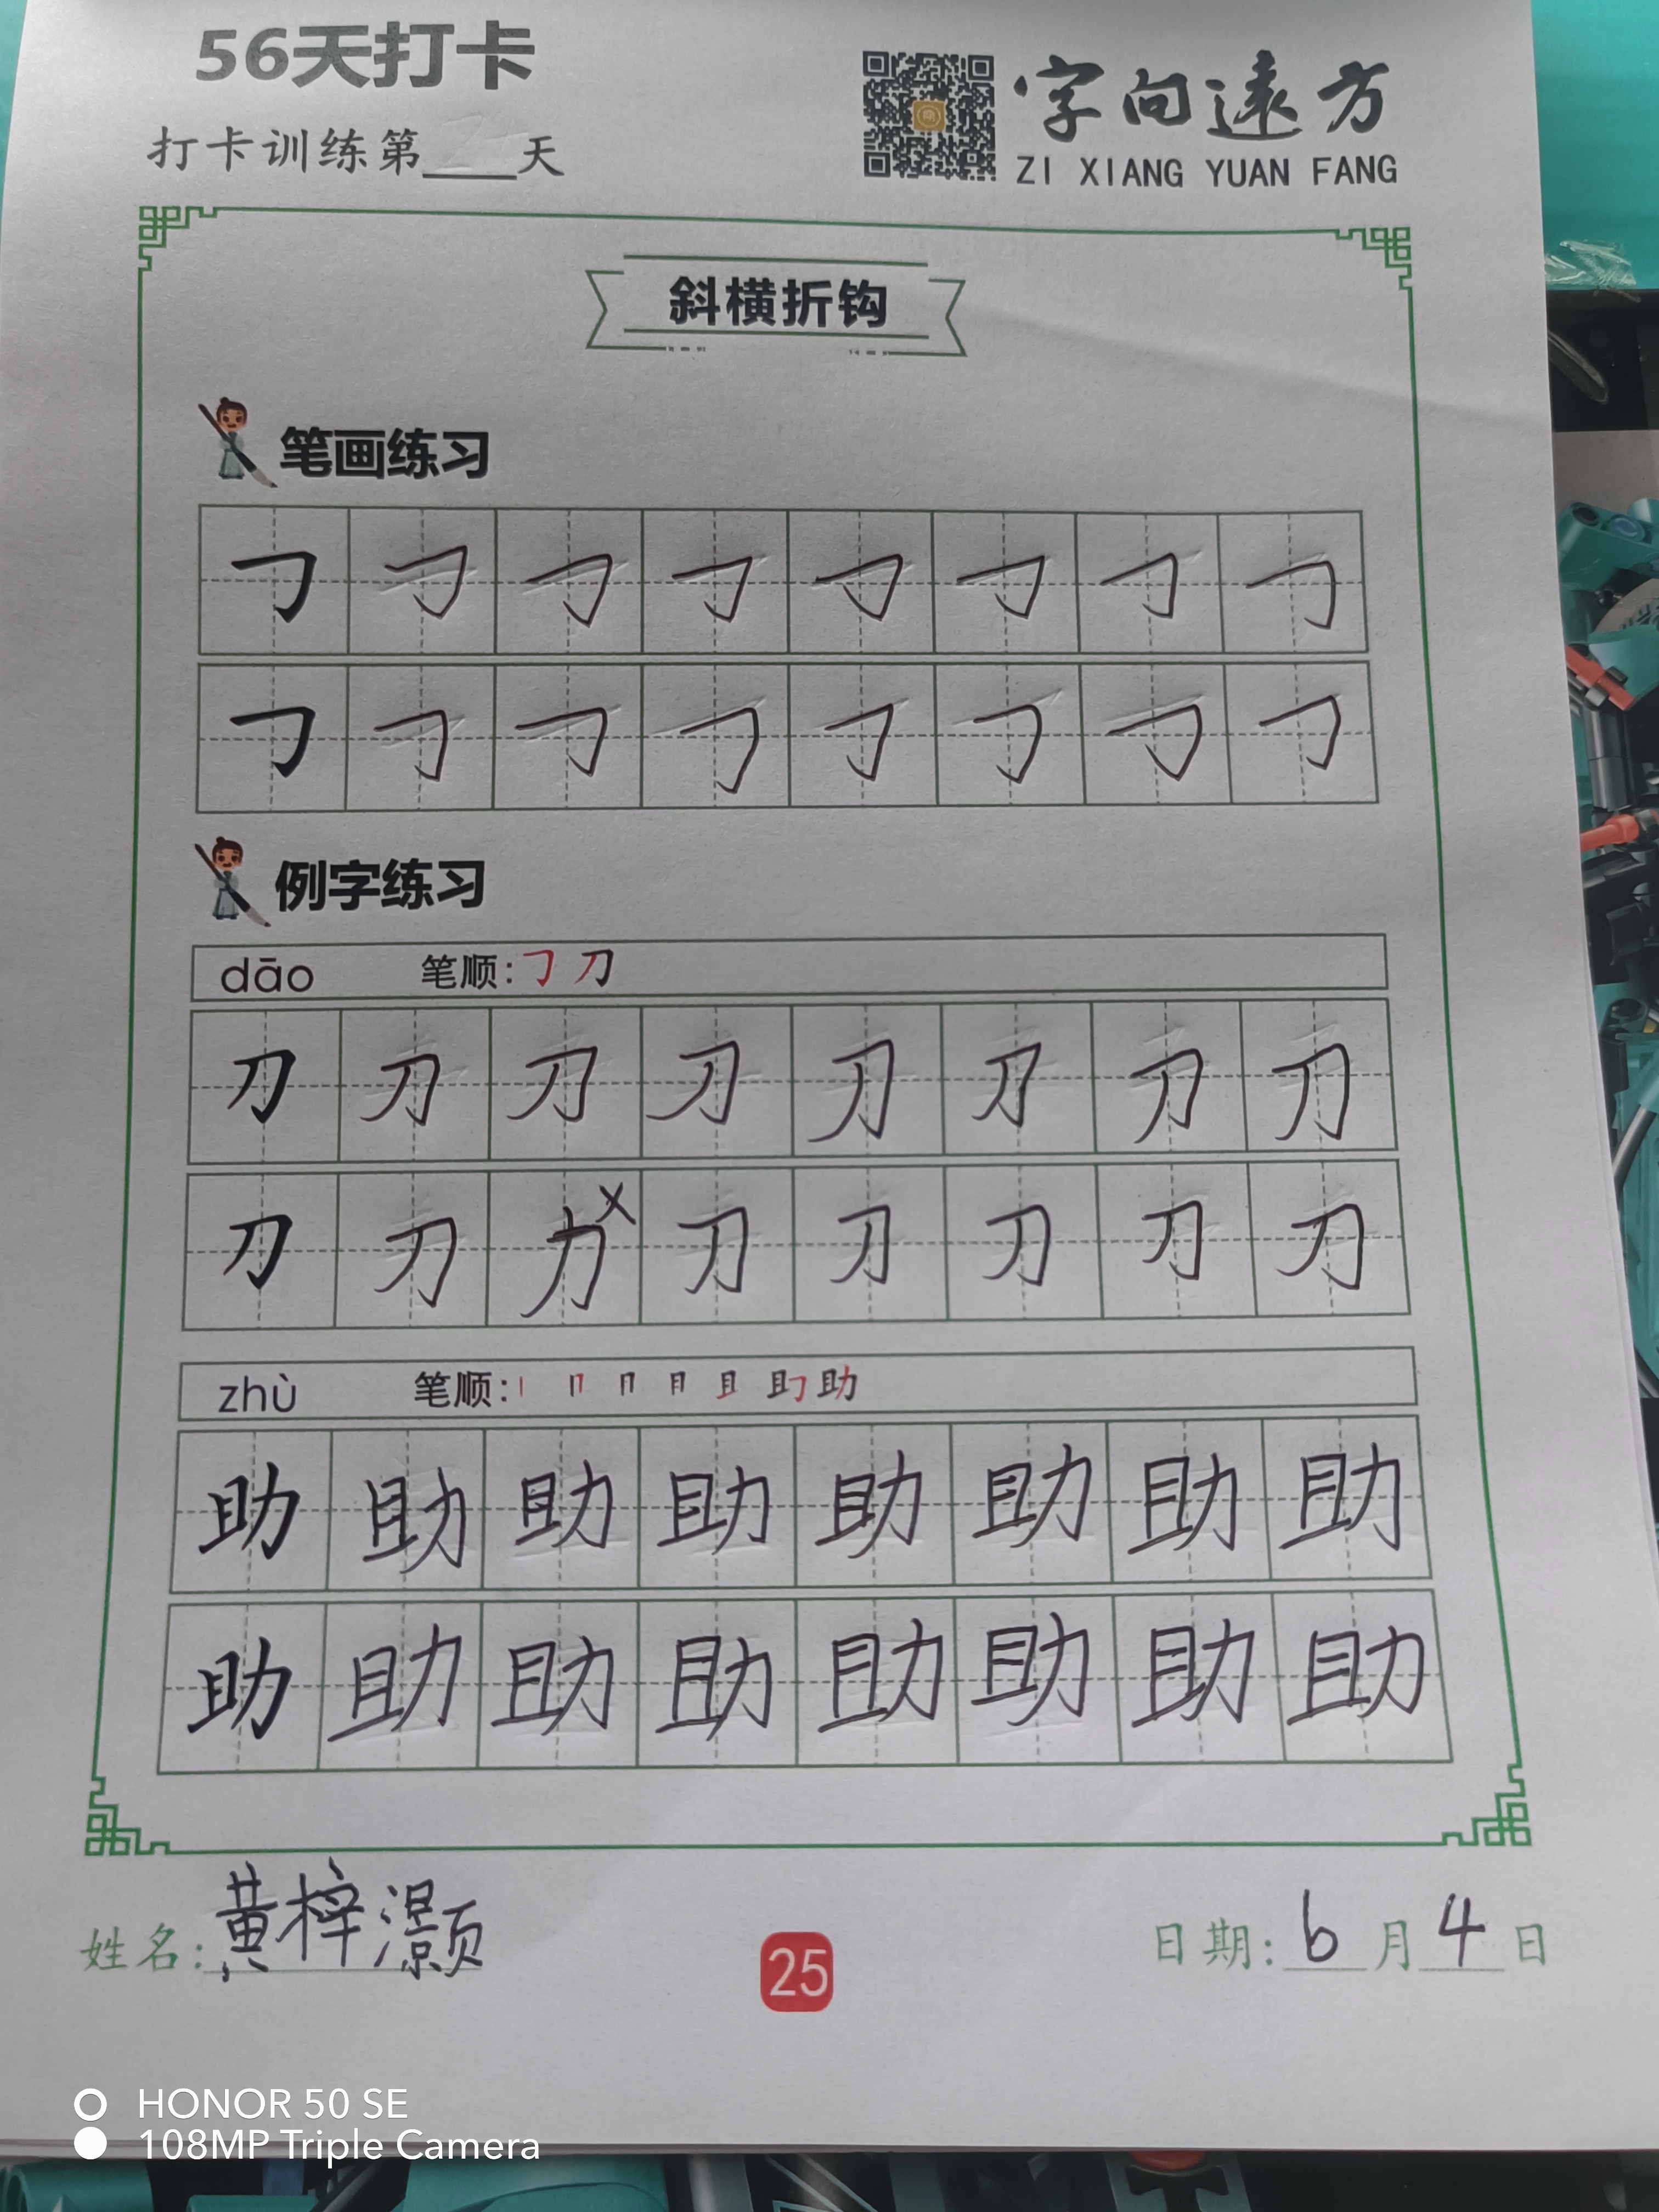 56天打卡
打卡训练第___天
字向远方
ZI XIANG YUAN FANG
斜横折钩
笔画练习
𠃌 𠃌 𠃌 𠃌 𠃌 𠃌 𠃌 𠃌
𠃌 𠃌 𠃌 𠃌 𠃌 𠃌 𠃌 𠃌
例字练习
dāo 笔顺:𠃌 刀
刀 刀 刀 刀 刀 刀 刀 刀
刀 刀 力 x 刀 刀 刀 刀 刀
zhù 笔顺:丨 冂 冂 月 且 助
助 助 助 助 助 助 助 助
助 助 助 助 助 助 助 助
姓名:黄梓灏
25
日期:6月4日
HONOR 50 SE
108MP Triple Camera